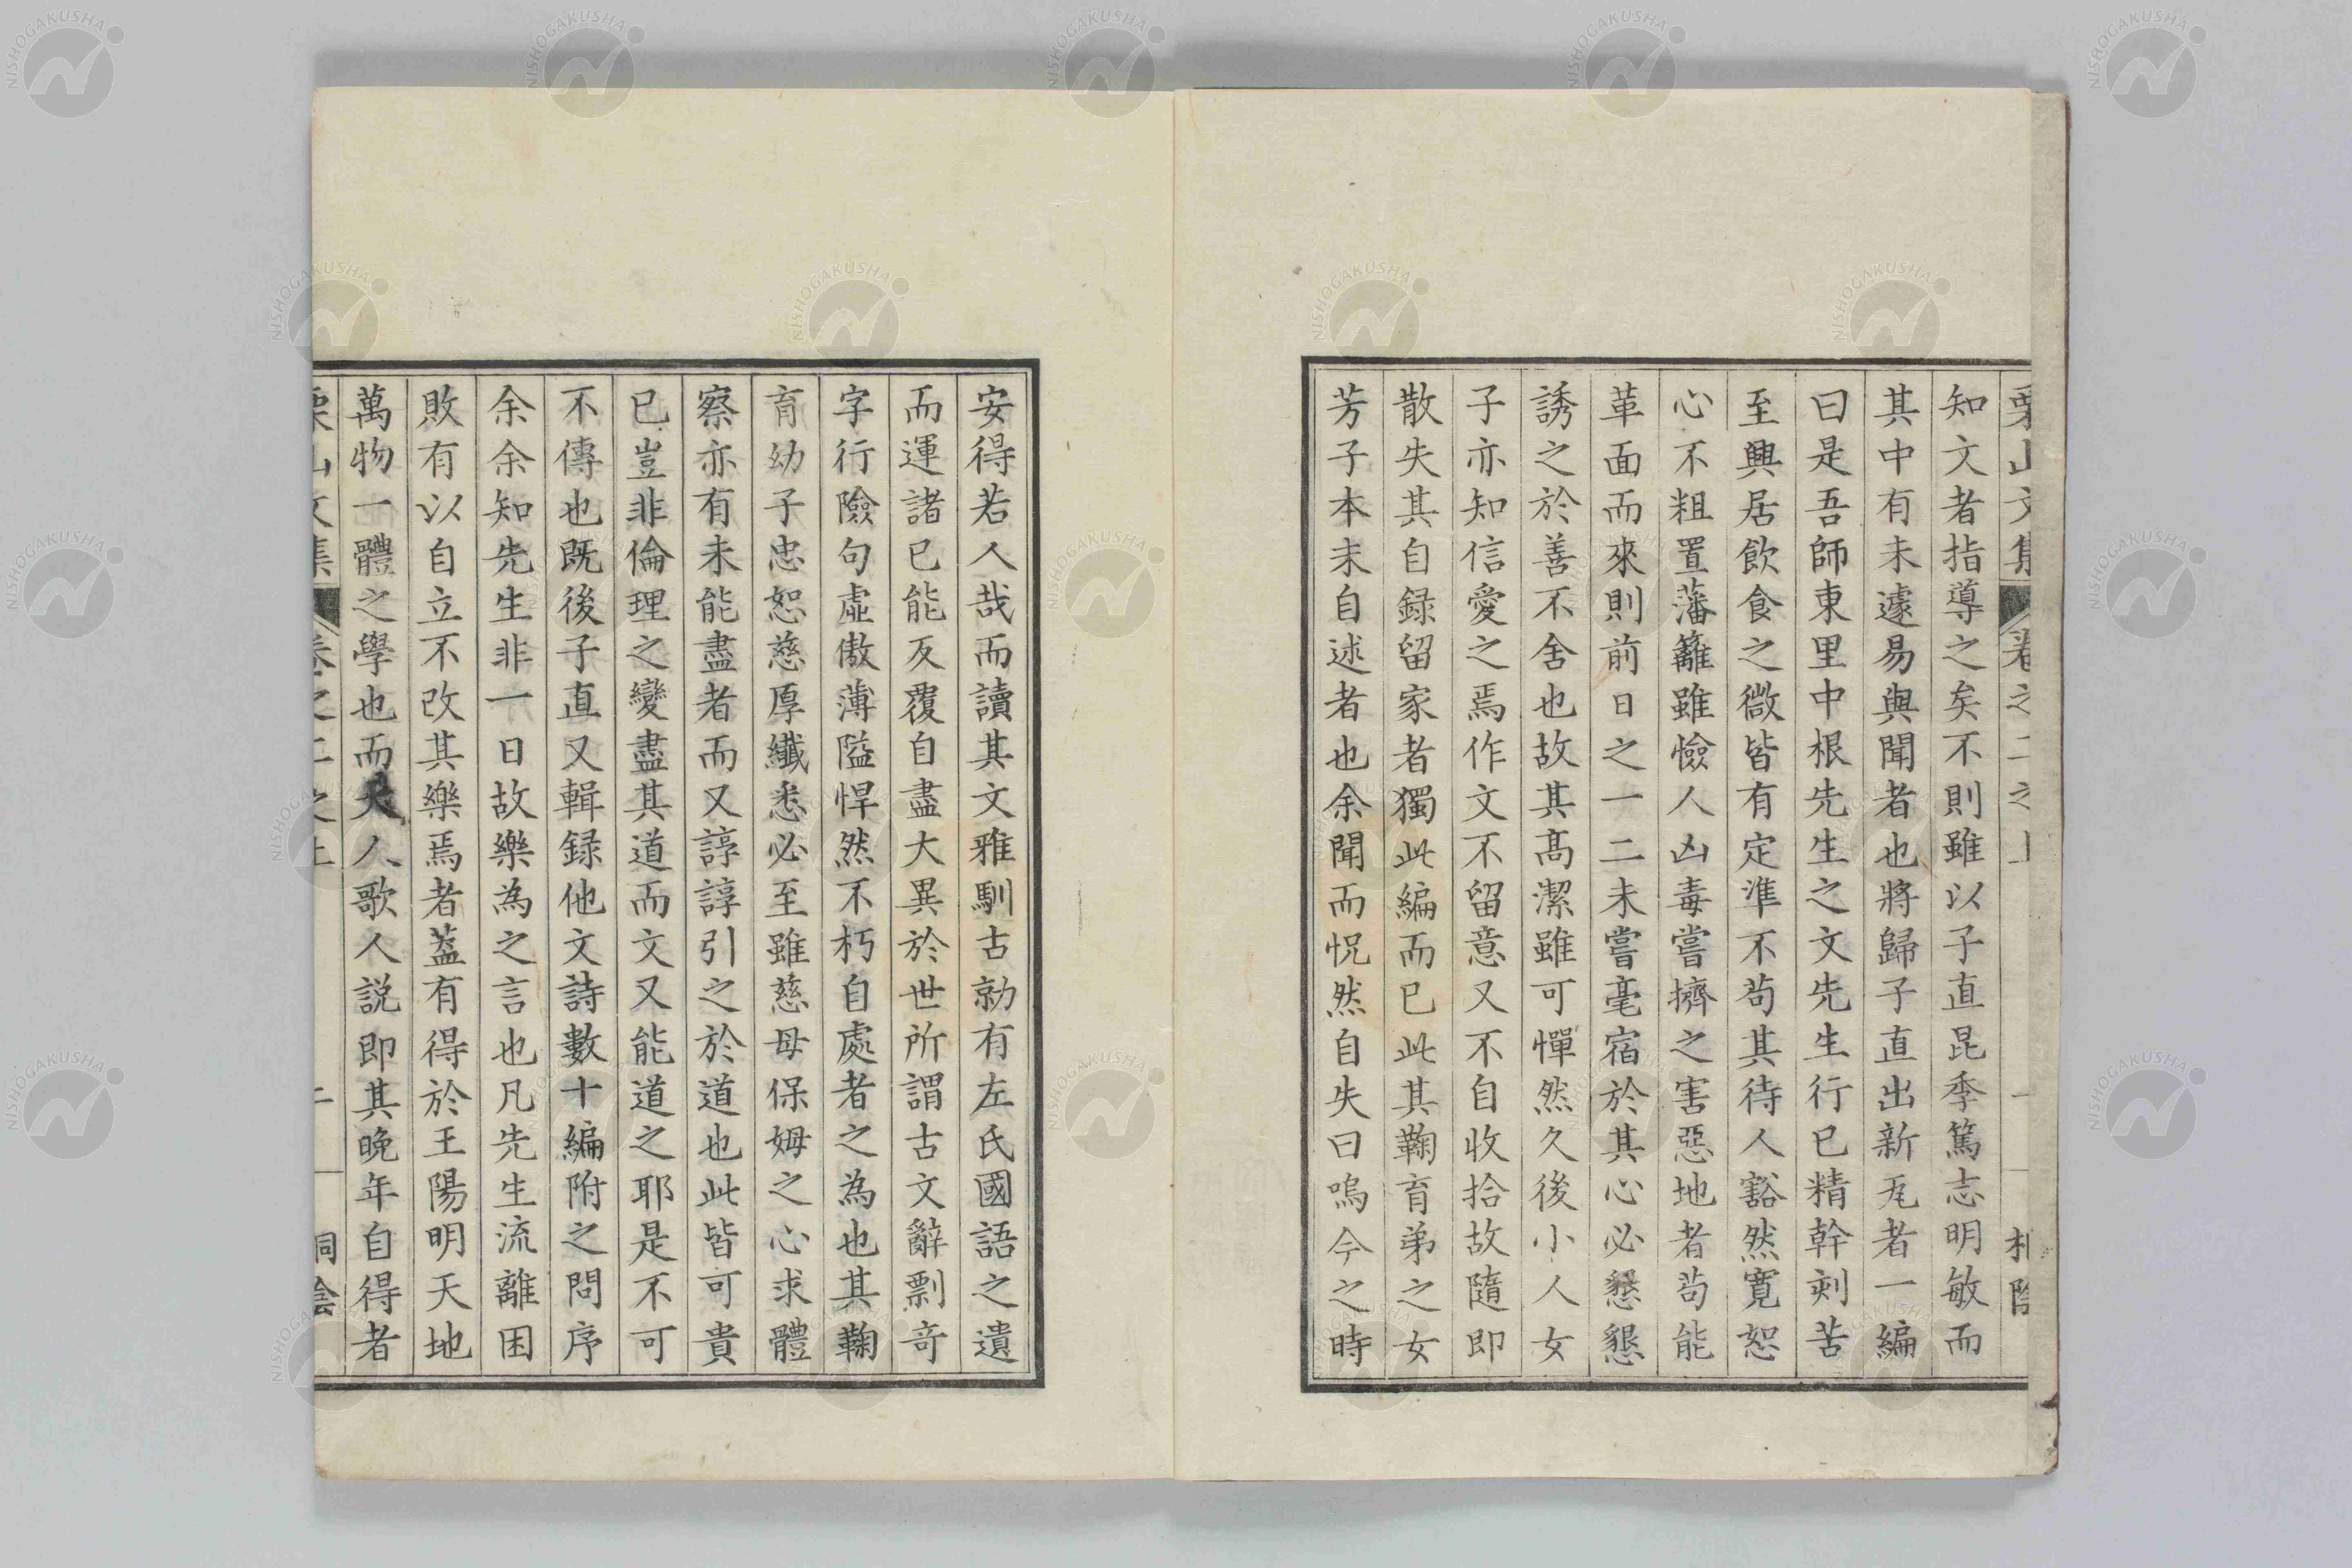 栗山文集 卷之二之上 一 桐陰
知文者指導之矣不則雖以子直昆季篤志明敏而
其中有未遽易與聞者也將歸子直出新刓者一編
曰是吾師東里中根先生之文先生行已精幹剡苦
至興居飲食之微皆有定準不苟其待人豁然寬恕
心不粗置藩籬雖憸人凶毒嘗擠之害惡地者苟能
革面而來則前日之一二未嘗毫宿於其心必懇懇
誘之於善不舍也故其高潔雖可憚然久後小人女
子亦知信愛之焉作文不留意又不自收拾故隨即
散失其自録留家者獨此編而已此其鞠育弟之女
芳子本末自述者也余聞而怳然自失曰嗚今之時
安得若人哉而讀其文雅馴古勍有左氏國語之遺
而運諸已能反覆自盡大異於世所謂古文辭剽竒
字行險句虛傲薄隘悍然不朽自處者之為也其鞠
育幼子忠恕慈厚纖悉必至雖慈母保姆之心求體
察亦有未能盡者而又諄諄引之於道也此皆可貴
已豈非倫理之變盡其道而文又能道之耶是不可
不傳也既後子直又輯録他文詩數十編附之問序
余余知先生非一日故樂為之言也凡先生流離困
敗有以自立不改其樂焉者蓋有得於王陽明天地
萬物一體之學也而大人歌人説即其晩年自得者
栗山文集 卷之二之上 二 桐陰
NISHOGAKUSHA